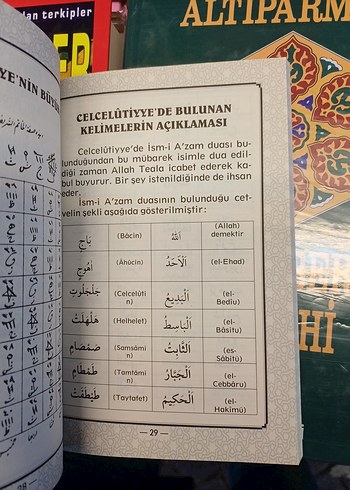 dan terkipler
ALTIPARM
YE'NİN BÜYÜ
CELCELÛTİYYE'DE BULUNAN
KELİMELERİN AÇIKLAMASI
Celcelûtiyye'de İsm-i A'zam duası bu-
lunduğundan bu mübarek isimle dua edil-
diği zaman Allah Teala icabet ederek ka-
bul buyurur. Bir şey istenildiğinde de ihsan
eder.
İsm-i A'zam duasının bulunduğu cet-
velin şekli aşağıda gösterilmiştir:
بَاجٍ (Bâcin) اَللهُ (Allah) demektir
اَهُوجٍ (Âhûcin) اَلْاَحَدُ (el-Ehad)
جَلْجَلُوتِ (Celcelûtin) اَلْبَدِيعُ (el-Bedîu)
هَلْهَلَتْ (Helhelet) اَلْبَاسِطُ (el-Bâsitu)
صَمْصَامٍ (Samsâmin) اَلثَّابِتُ (es-Sâbitü)
طَمْطَامٍ (Tamtâmin) اَلْجَبَّارُ (el-Cebbâru)
طَيْطَفَتْ (Taytafet) اَلْحَكِيمُ (el-Hakîmü)
— 29 —
Hİ